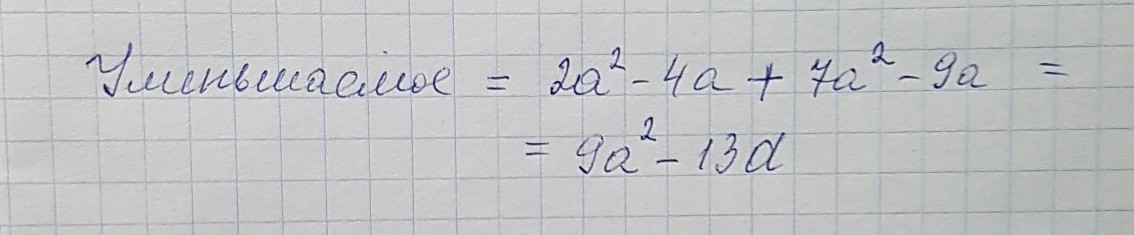 Уменьшаемое = 2a² - 4a + 7a² - 9a =
= 9a² - 13a